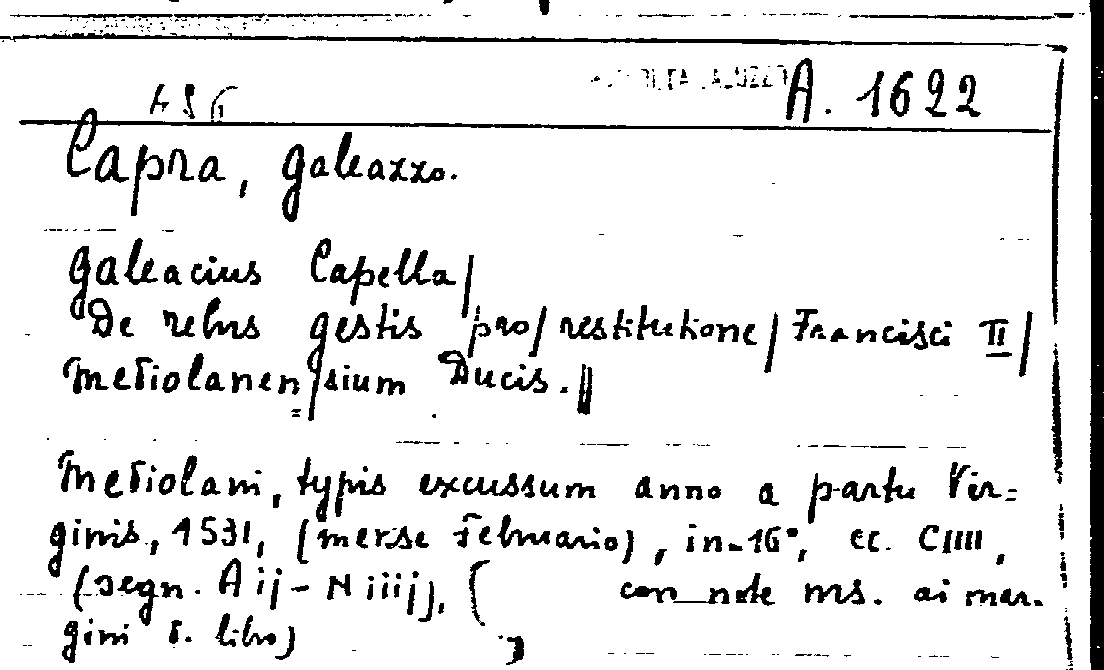 A. 1622
Capra, Galeazzo.
Galeacius Capella/
De rebus gestis pro/restitutione/Francisci II/
Mediolanen=/sium Ducis.||
Mediolani, typis excussum anno a partu Vir=
ginis, 1531, (mense Februario), in-16°, cc. CIIII,
(segn. A ij - N iiij), (con note ms. ai mar-
gini d. libro)